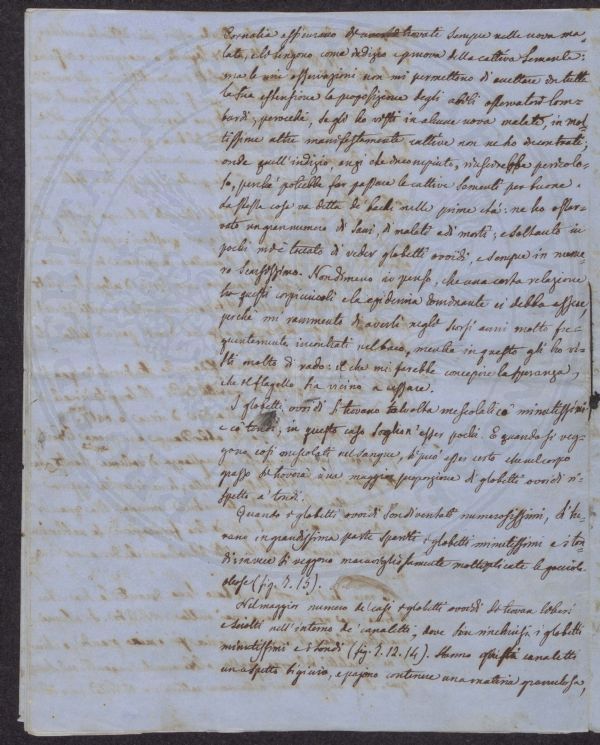 Cornalia assicurano di trovati sempre nelle uova ma-
late, e lo tengono come indizio e pruova della cattiva semente:
ma le mie osservazioni non mi permettono d'accettare in tutta
la sua estensione la proposizione degli abili osservatori Lom-
bardi; perocchè, se gli ho visti in alcune uova malate, in mol-
tissime altre manifestamente cattive non ne ho incontrati;
onde quell'indizio, anzi che incompiuto, riuscirebbe pericolo-
so, perchè potrebbe far passare le cattive sementi per buone.
La stessa cosa va detta de' bachi nelle prime età: ne ho osser-
vato un gran numero di sani, di malati e di morti; e soltanto in
pochi mi è toccato di veder globetti ovoidi, e sempre in nume
ro scarsissimo. Nondimeno io penso, che una certa relazione
tra questi corpicciuoli e la epidemia dominante ci debba essere,
perchè mi rammento di averli negli scorsi anni molto fre-
quentemente incontrati nel baco, mentre in questo gli ho vi-
sti molto di rado: il che mi farebbe concepire la speranza,
che il flagello sia vicino a cessare.
I globetti ovoidi si trovano talvolta mescolati co' minutissimi
e co' tondi, in questo caso soglion' esser pochi. E quando si veg-
gono così mescolati nel sangue, si può esser certo che nel corpo
grasso si troverà una maggior proporzione di globetti ovoidi ri-
spetto a' tondi.
Quando i globetti ovoidi son diventati numerosissimi,
in grandissima parte spariti i globetti minutissimi e i ton-
di invece si veggono maravigliosamente moltiplicate le gocciole
oleose (fig. 7. 13).
Nel maggior numero de' casi i globetti ovoidi si trovan liberi
e sciolti nell'interno de' canaletti, dove son rinchiusi i globetti
minutissimi e i tondi (fig. 7. 12. 14). Hanno questi canaletti
un aspetto bigiccio, e pajono contenere una materia granulosa,